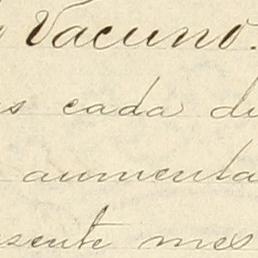 Vacuno.
s cada di
aumenta
sente mes